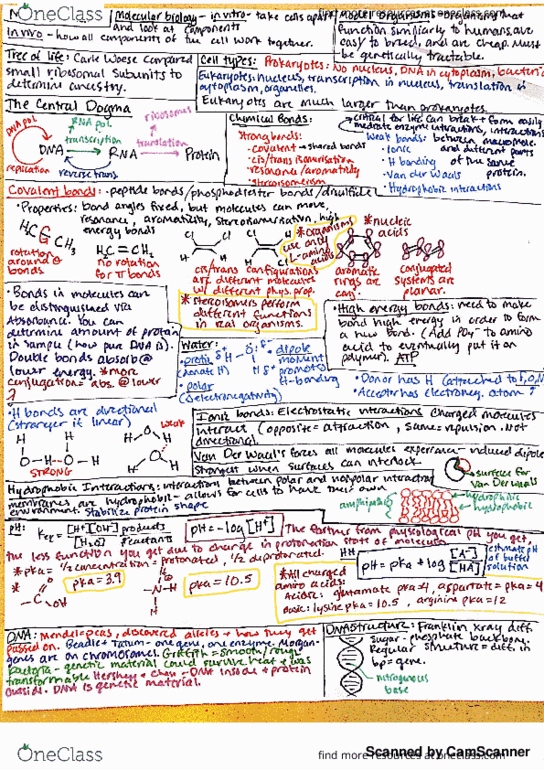 Molecular biology - in vitro - take cells apart and look at components
in vivo - how all components of the cell work together.
Model organisms: organisms that
function similiarly to humans, are
easy to breed, and are cheap. Must
be genetically tractable.
Tree of life: Carle Woese compared
small ribosomal subunits to
determine ancestry.
Cell types: Prokaryotes: No nucleus, DNA in cytoplasm, bacteria
Eukaryotes: nucleus, transcription in nucleus, translation in
cytoplasm, organelles.
Eukaryotes are much larger than prokaryotes.
The Central Dogma
DNA pol
RNA pol
ribosomes
transcription
translation
DNA
RNA
Protein
replication
reverse trans.
Chemical Bonds:
critical for life can break + form easily
mediate enzyme interactions, interactions
Strong bonds:
• covalent → shared bonds
• cis/trans isomerisation
• resonance/aromaticity
• stereoisomerism
Weak bonds: between macromole.
and different parts
of the same
protein.
• Ionic
• H bonding
• Van der Waals
• Hydrophobic interactions
Covalent bonds: - peptide bonds/phosphodiester bonds/disulfide
• Properties: bond angles fixed, but molecules can move,
resonance, aromaticity, stereoisomerisation, high
energy bonds
H₃C CH₃
rotation
around σ
bonds
H₂C = CH₂
no rotation
for π bonds
Cl Cl
cis/trans configurations
are different molecules
w/ different phys. prop.
*organisms
use only
L-amino
acids
*nucleic
acids
aromatic
rings are
conj.
conjugated
systems are
planar.
*stereoisomers perform
different functions
in real organisms.
• Bonds in molecules can
be distinguished via
absorbance. You can
determine amount of protein
in sample (how pure DNA is).
Double bonds absorb @
lower energy. *more
conjugation = abs. @ lower
• High energy bonds: need to make
bond high energy in order to form
a new bond. (Add PO₄⁻ to amino
acid to eventually put it on
polymer). ATP
Water:
• protic
(donate H)
• polar
(Δelectronegativity)
• dipole
moment
promotes
H-bonding
• Donor has H (attached to F,O,N)
• Acceptor has electroneg. atom
• H bonds are directional
(stronger if linear)
STRONG
weak
Ionic bonds: Electrostatic interactions charged molecules
interact (opposite = attraction, same = repulsion. Not
directional.
Van Der Waal's: forces all molecules experience - induced dipole
strongest when surfaces can interlock
surface for
Van der Waals
Hydrophobic Interactions: interactions between polar and nonpolar interactions
membranes are hydrophobic - allows for cells to have their own
environment. Stabilize protein shape
amphipathic
hydrophilic
hydrophobic
pH:
Keq = [H⁺][OH⁻] products
[H₂O] reactants
pH = -log [H⁺]
The farther from physiological pH you get,
the less function you get due to change in protonation state of molecule
*pKa = ½ concentration = protonated, ½ deprotonated
HH
pH = pKa + log [A⁻]
[HA]
estimate pH
of buffer
solution
pKa = 3.9
pKa = 10.5
*All charged
amino acids:
Acidic: glutamate pKa = 4, aspartate = pKa = 4
Basic: lysine pKa = 10.5, arginine pKa = 12
DNA: Mendel = peas, discovered alleles + how they get
passed on. Beadle + Tatum - one gene, one enzyme. Morgan -
genes are on chromosomes. Griffith = smooth/rough
bacteria - genetic material could survive heat + was
transformable. Hershey + Chase - DNA inside + protein
outside. DNA is genetic material.
DNA structure: Franklin xray diff.
sugar-phosphate backbone.
Regular structure = diff. in
bp = gene.
nitrogenous
base
OneClass
find more resources at oneclass.com
Scanned by CamScanner